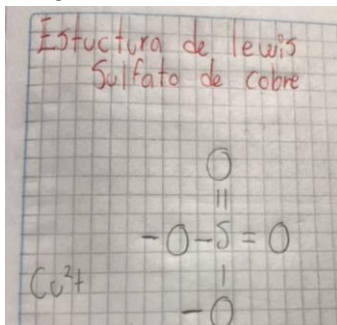 Estuctura de lewis
Sulfato de cobre
O
||
-O-S=O
|
Cu²+
-O